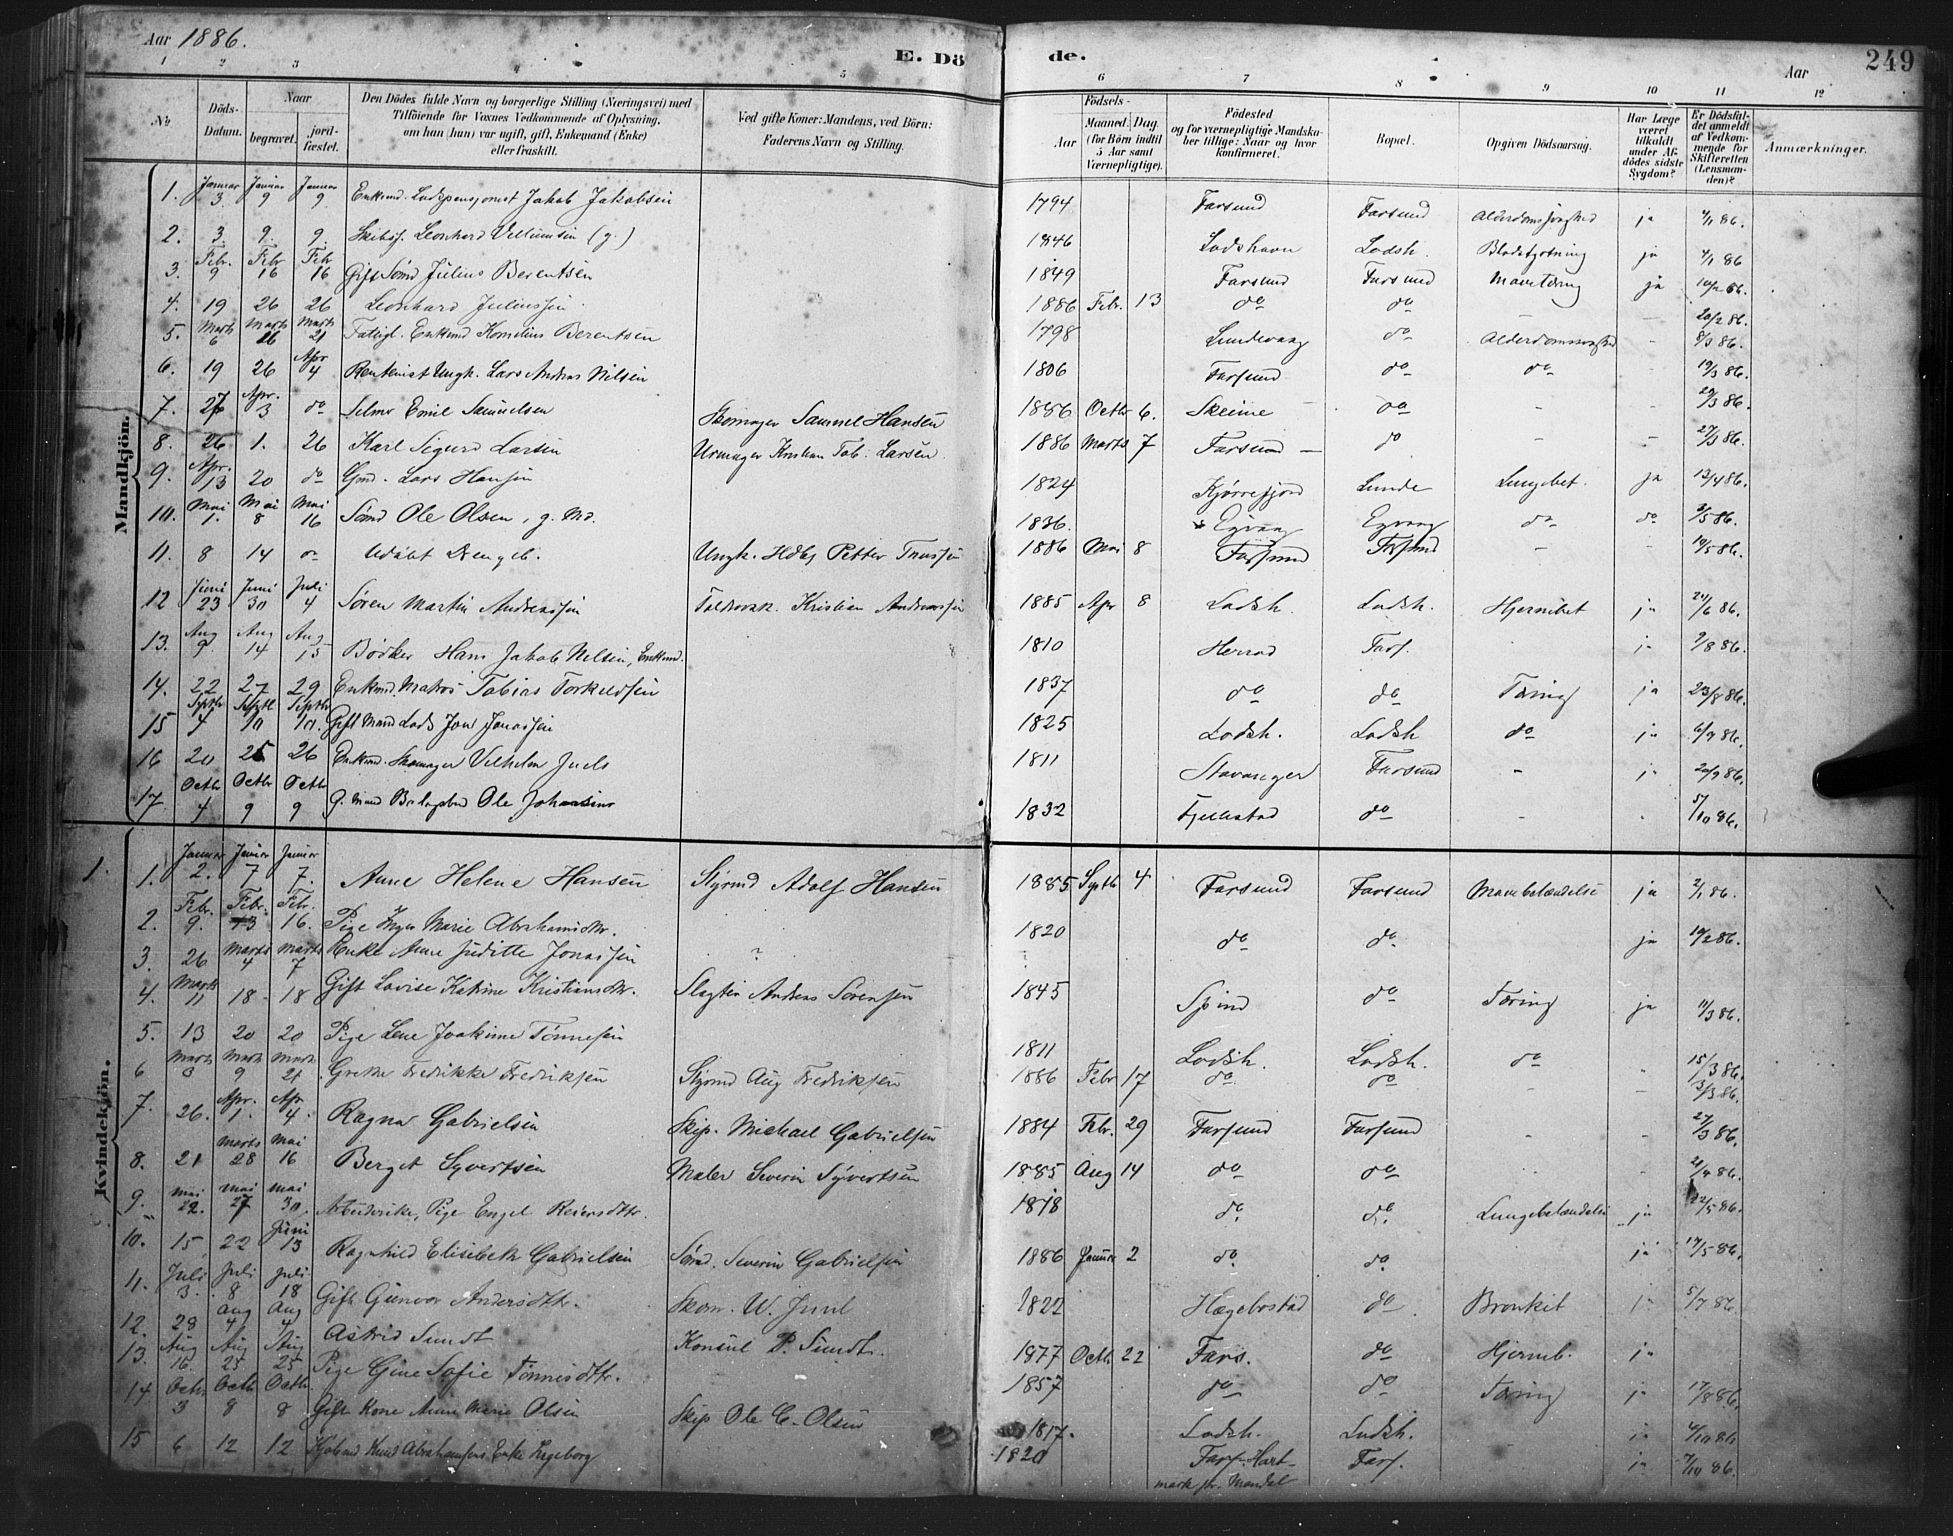 Aar 1886.
E. Dö de.
Aar
249
1 2 3 4 5 6 7 8 9 10 11 12
No
Döds-Datum.
Naar
begravet.
jordfæstet.
Den Dödes fulde Navn og borgerlige Stilling (Næringsvei) med
Tilföiende for Voxnes Vedkommende af Oplysning,
om han (hun) var ugift, gift, Enkemand (Enke)
eller fraskilt.
Ved gifte Koner: Mandens, ved Börn:
Faderens Navn og Stilling.
Födsels-
Aar
Maaned. Dag.
(for Börn indtil
5 Aar samt
Værnepligtige).
Födested
og for værnepligtige Mandskaber
tillige: Naar og hvor
konfirmeret.
Bopæl.
Opgiven Dödsaarsag.
Har Læge
været
tilkaldt
under Afdödes
sidste
Sygdom?
Er Dödsfaldet
anmeldt
af Vedkommende
for
Skifteretten
(Lensmanden)?
Anmærkninger.
Mandkjön.
1. Januar 3 Januar 9 Januar 9 Jakob Jakobsen 1794 Farsund Farsund ja 4/1 86.
2. 3. 9. 9. Leonhard Villumsen (g.) 1846 Lodshavn Lodsh. ja 4/1 86
3. Febr. 9 Febr 16 Feb 16 Gift Sømd Julius Berentsen 1849 Farsund Farsund Mavetæring ja 10/2 86.
4. 19 26 26 Leonhard Juliussen 1886 Febr. 13 do do - - 20/2 86.
5. Marts 6 Marts 16 Marts 21 Fattigl. Enkemd Kornelius Berentsen 1798 Lundevaag do Alderdomssvaghed - 8/3 86.
6. 19 26 Apr 4 Rentenist Ungk. Lars Andreas Nilsen 1806 Farsund do do - 19/3 86.
7. 27 Apr. 3 do Selmer Emil Samuelsen Skomager Samuel Hansen 1886 Octbr 6. Skeime do - - 29/3 86.
8. 26 1. 26 Karl Sigurd Larsen Urmager Kristian Tob. Larsen 1886 Marts 7 Farsund do - - 27/3 86.
9. Apr. 13 20 do Gmd. Lars Hansen 1824 Kjørrefjord Lunde Lungebet. ja 13/4 86.
10. Mai 1. Mai 8 Mai 16 Sømd Ole Olsen, g. Md. 1836. Egvaag Egvaag do do 3/5 86.
11. 8 14 Udøbt Drengeb. Ungk. Petter 1886 Mai 8 Farsund Farsund - - 10/5 86.
12 Juni 23 Juni 30 Juli 4 Søren Martin Andreassen Toldrorsk. Kristian Andreassen 1885 Apr 8 Lodsh. Lodsh. Hjernebet ja 24/6 86.
13. Aug 9 Aug 14 Aug 15 Bødker Hans Jakob Nilsen, Enkemd. 1810 Herrad Fars. - ja 9/8 86.
14. 22 27 29 Enkemd. Matros Tobias Torkeldsen 1837 do do Tæring ja 23/8 86.
15 Septbr 4 Septbr 10 Septbr 10. Gift Mand Lods Jon Jonassen 1825 Lodsh. Lodsh do ja 6/9 86.
16 20 25 26 Enkemd. Skomager Vilhelm Juel 1811 Stavanger Farsund - ja 20/9 86.
17. Octbr 4 Octbr 9 Octbr 9 G. Mand Ole Johansen 1832 Fjellestad do - - 5/10 86.
Kvindekjön.
1.
1. Januar 2. Januar 7 Januar 7. Anne Helene Hansen Styrmd Adolf Hansen 1885 Septb 4 Farsund Farsund Mavebetændelse ja 2/1 86.
2. Febr. 9. Febr. 13 Febr. 16. Pige Inger Marie Abrahamsdtr. 1820 do do ja 10/2 86.
3. 26 Marts 4 Marts 7 Enke Anne Juditte Jonassen
4. Marts 11 18 18 Gift Lovise Katrine Kristiansdtr. Slagter Andreas Sørensen 1845 Spind do Tæring ja 11/3 86.
5. 13 20 20 Pige Lene Joakime Tønnesen 1811 Lodsh. Lodsh. do 15/3 86.
6 Marts 3 Marts 9 Marts 21 Grethe Fredrikke Fredriksen Styrmd Aug Fredriksen 1886 Febr 17 do do - - 3/3 86.
7. 26. Apr. 1. Apr 4. Ragna Gabrielsen Skip. Michael Gabrielsen 1884 Febr. 29 Farsund Farsund - - 27/3 86.
8. 21 Marts 28 Mai 16 Berget Syvertsen Maler Severin Syvertsen 1885 Aug 14 do do 21/4 86.
9. Mai 22. Mai 27 Mai 30. Pige Engel Reiersdtr. 1818 do. do. Lungebetændelse ja 22/5 86.
10. 15 22 Juni 13 Ragnhild Elisebeth Gabrielsen Sømd. Severin Gabrielsen 1886 Januar 2 do. do. ja 17/5 86.
11. Juli 3. Juli 8 Juli 18 Gift Gunvor Andersdtr. Skom. W. Juul 1822 Hægebostad do Bronkit ja 5/7 86.
12. 28 Aug 4 Aug 4 Astrid Sundt Konsul P. Sundt. 1877 Octb 22 Fars. do Hjerneb. ja
13. Aug 16. Aug 25 Aug 25 Pige Gine Sofie Tønnesdtr. 1857 do do Tæring ja 17/8 86.
14 Octbr 3 Octbr 8 Octbr 8 Gift Kone Anne Marie Olsen Skip Ole C. Olsen 1817. Lodsh. Lodsh. ja 4/10 86
15 6 12 12 Knud Abrahamsens Enke Ingeborg 1820 Fars. Hartmark pr. Mandal Fars. ja 7/10 86.